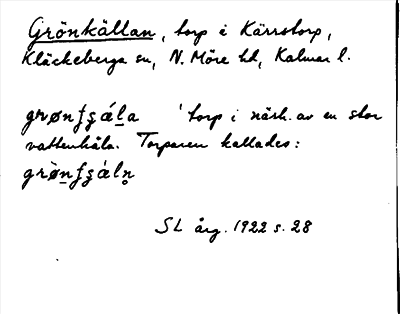 Grönkällan, torp i Kärrstorp,
Kläckeberga sn, N. Möre hd, Kalmar l.
torp i närh. av en stor
vattenkäla. Torparen kallades:
SL årg. 1922 s. 28